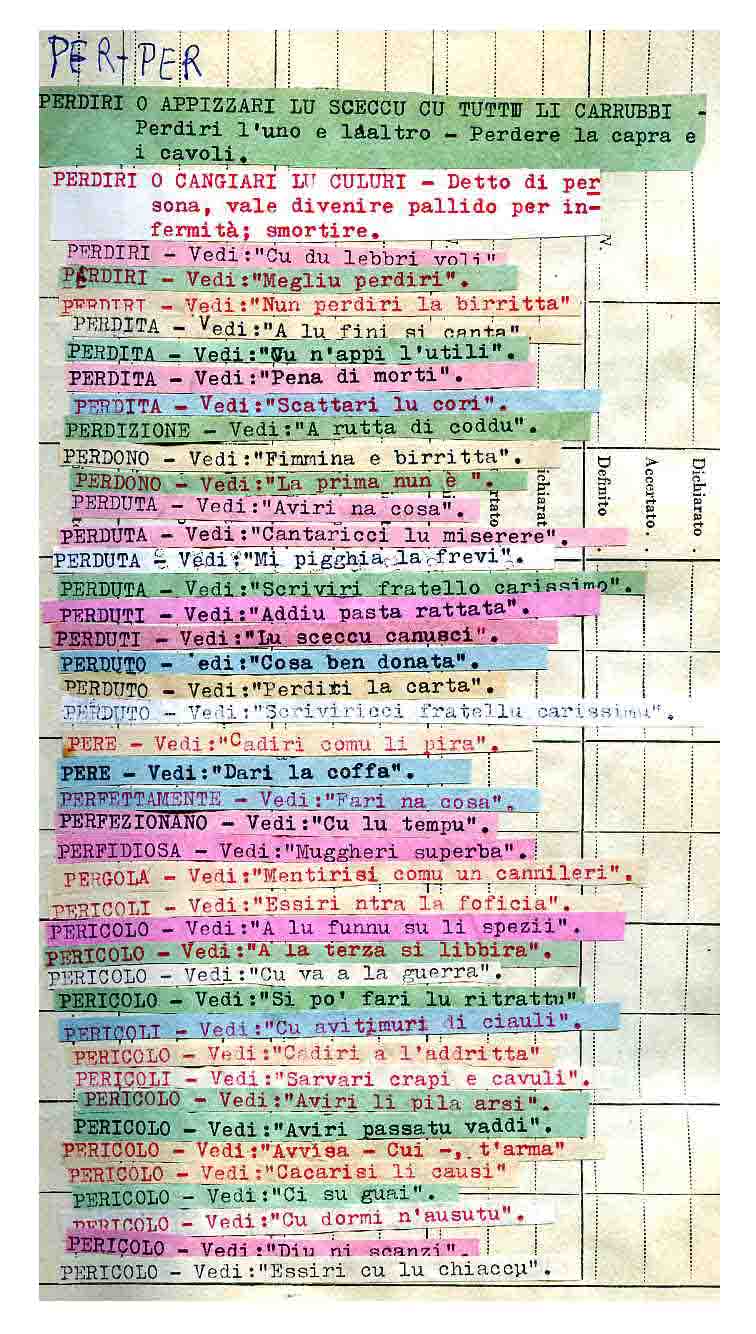 PER-PER
PERDIRI O APPIZZARI LU SCECCU CU TUTTU LI CARRUBBI -
Perdiri l'uno e l'altro - Perdere la capra e
i cavoli.
PERDIRI O CANGIARI LU CULURI - Detto di per
sona, vale divenire pallido per in-
fermità; smortire.
PERDIRI - Vedi:"Cu du lebbri voli"
PERDIRI - Vedi:"Megliu perdiri".
PERDIRI - Vedi:"Nun perdiri la birritta"
PERDITA - Vedi:"A lu fini si canta"
PERDITA - Vedi:"Cu n'appi l'utili".
PERDITA - Vedi:"Pena di morti".
PERDITA - Vedi:"Scattari lu cori".
PERDIZIONE - Vedi:"A rutta di coddu".
PERDONO - Vedi:"Fimmina e birritta".
PERDONO - Vedi:"La prima nun è ".
PERDUTA - Vedi:"Aviri na cosa".
PERDUTA - Vedi:"Cantaricci lu miserere".
PERDUTA - Vedi:"Mi pigghia la frevi".
PERDUTA - Vedi:"Scriviri fratello carissimo".
PERDUTI - Vedi:"Addiu pasta rattata".
PERDUTI - Vedi:"Lu sceccu canusci".
PERDUTO - edi:"Cosa ben donata".
PERDUTO - Vedi:"Perditi la carta".
PERDUTO - Vedi:"Scriviricci fratellu carissimu".
PERE - Vedi:"Cadiri comu li pira".
PERE - Vedi:"Dari la coffa".
PERFETTAMENTE - Vedi:"Fari na cosa".
PERFEZIONANO - Vedi:"Cu lu tempu".
PERFIDIOSA - Vedi:"Muggheri superba".
PERGOLA - Vedi:"Mentirisi comu un cannileri".
PERICOLI - Vedi:"Essiri ntra la foficia".
PERICOLO - Vedi:"A lu funnu su li spezii".
PERICOLO - Vedi:"A la terza si libbira".
PERICOLO - Vedi:"Cu va a la guerra".
PERICOLO - Vedi:"Si po' fari lu ritrattu"
PERICOLI - Vedi:"Cu avi timuri di ciauli".
PERICOLO - Vedi:"Cadiri a l'addritta"
PERICOLI - Vedi:"Sarvari crapi e cavuli".
PERICOLO - Vedi:"Aviri li pila arsi".
PERICOLO - Vedi:"Aviri passatu vaddi".
PERICOLO - Vedi:"Avvisa - Cui -, t'arma"
PERICOLO - Vedi:"Cacarisi li causi"
PERICOLO - Vedi:"Ci su guai".
PERICOLO - Vedi:"Cu dormi n'ausutu".
PERICOLO - Vedi:"Diu ni scanzi".
PERICOLO - Vedi:"Essiri cu lu chiaccu".
Definito .
Accertato .
Dichiarato .